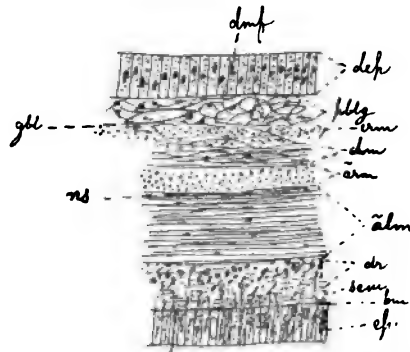 dmf
dep
pblg
gbl
irm
dm
ärm
ns
älm
dr
sem
bm
ep.